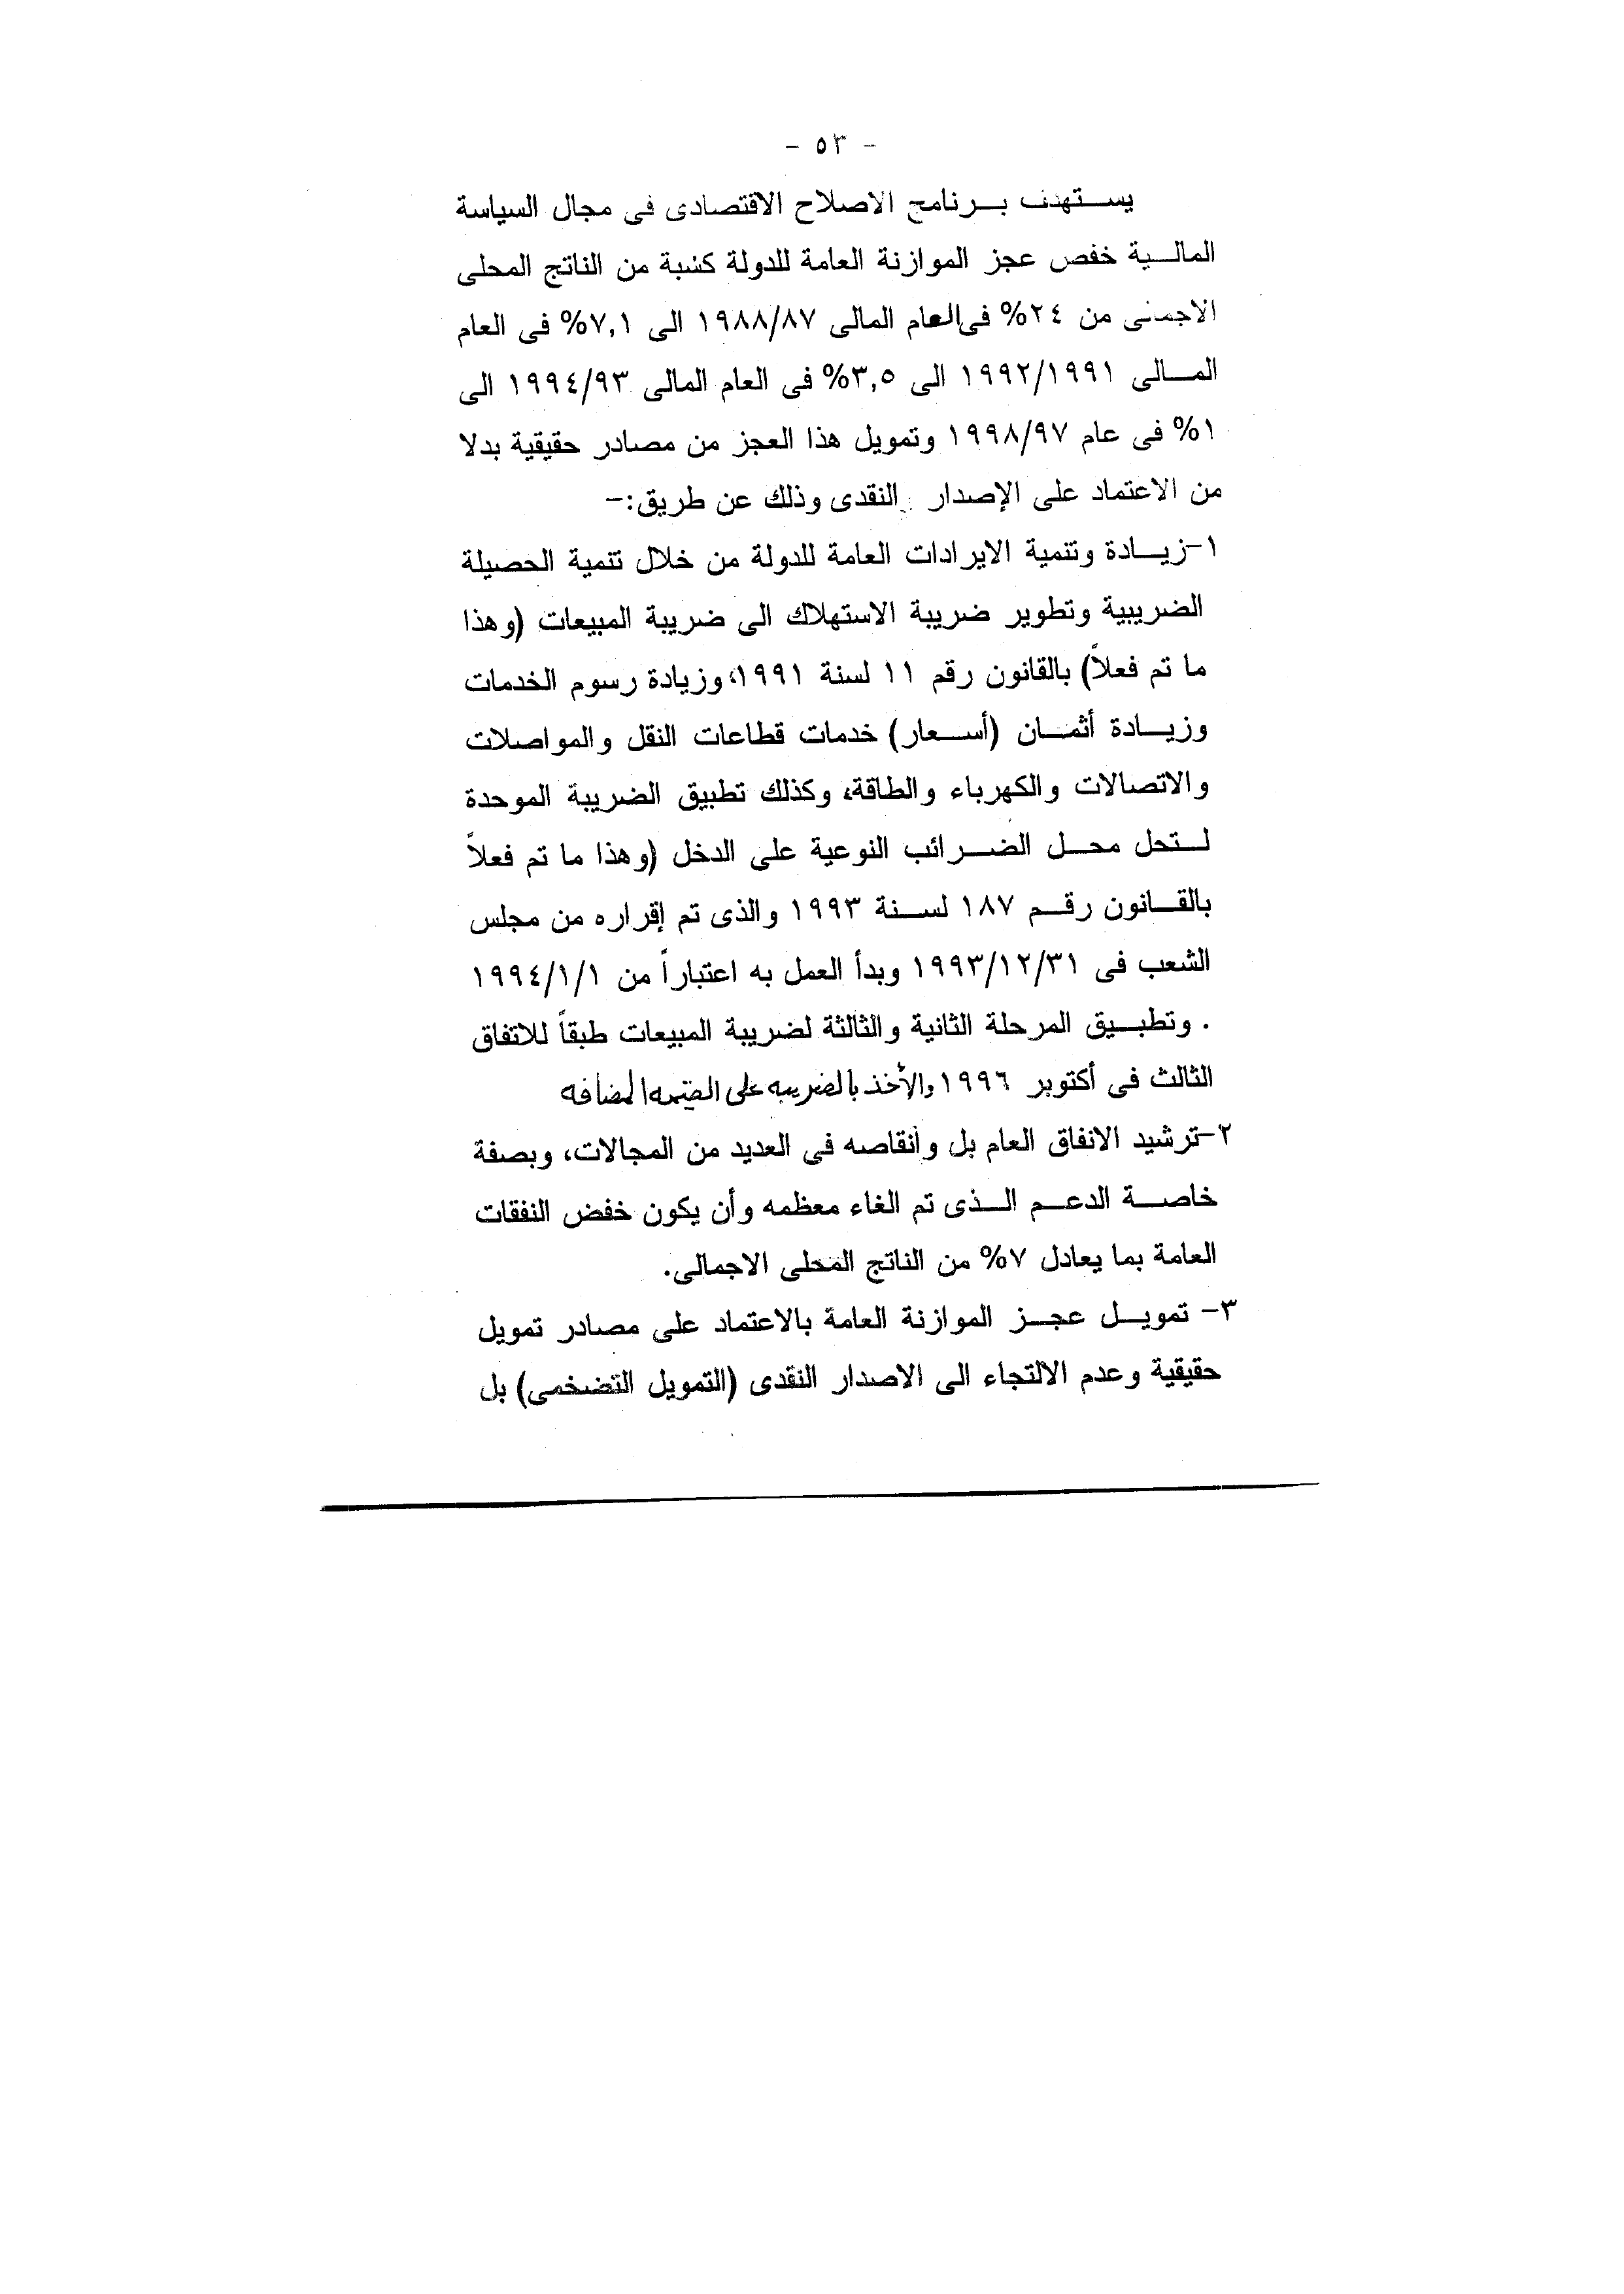 - ٥٣ -
يستهدف برنامج الاصلاح الاقتصادى فى مجال السياسة
المالية خفص عجز الموازنة العامة للدولة كنسبة من الناتج المحلى
الاجمالى من ٢٤% فى العام المالى ١٩٨٨/٨٧ الى ٧,١% فى العام
المالى ١٩٩٢/١٩٩١ الى ٣,٥% فى العام المالى ١٩٩٤/٩٣ الى
١% فى عام ١٩٩٨/٩٧ وتمويل هذا العجز من مصادر حقيقية بدلا
من الاعتماد على الإصدار النقدى وذلك عن طريق:-
١-زيادة وتنمية الايرادات العامة للدولة من خلال تنمية الحصيلة
الضريبية وتطوير ضريبة الاستهلاك الى ضريبة المبيعات (وهذا
ما تم فعلاً) بالقانون رقم ١١ لسنة ١٩٩١، وزيادة رسوم الخدمات
وزيادة أثمان (أسعار) خدمات قطاعات النقل والمواصلات
والاتصالات والكهرباء والطاقة، وكذلك تطبيق الضريبة الموحدة
لتحل محل الضرائب النوعية على الدخل (وهذا ما تم فعلاً
بالقانون رقم ١٨٧ لسنة ١٩٩٣ والذى تم إقراره من مجلس
الشعب فى ١٩٩٣/١٢/٣١ وبدأ العمل به اعتباراً من ١٩٩٤/١/١
. وتطبيق المرحلة الثانية والثالثة لضريبة المبيعات طبقاً للاتفاق
الثالث فى أكتوبر ١٩٩٦ والأخذ بالضريبه على القيمه المضافه
٢-ترشيد الانفاق العام بل وأنقاصه فى العديد من المجالات، وبصفة
خاصة الدعم الذى تم الغاء معظمه وأن يكون خفض النفقات
العامة بما يعادل ٧% من الناتج المحلى الاجمالى.
٣- تمويل عجز الموازنة العامة بالاعتماد على مصادر تمويل
حقيقية وعدم الالتجاء الى الاصدار النقدى (التمويل التضخمى) بل